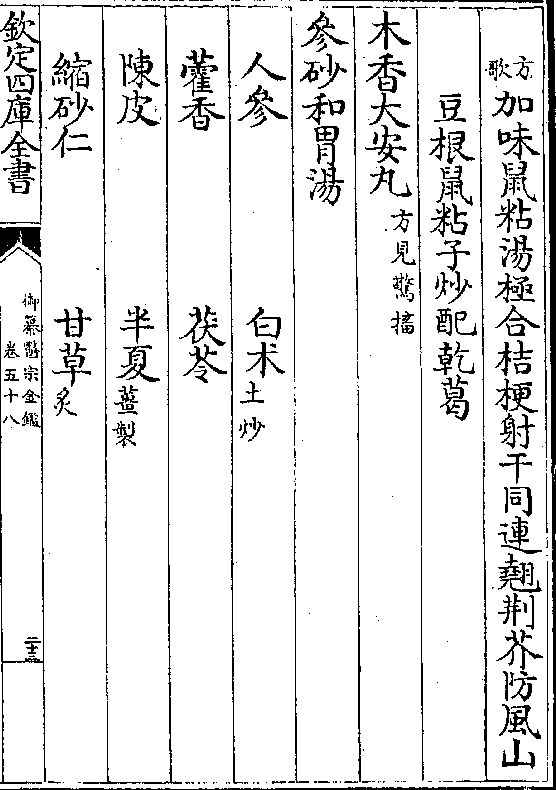 方歌 加味鼠粘湯極合桔梗射干同連翹荆芥防風山
豆根鼠粘子炒配乾葛
木香大安丸 方見驚搐
參砂和胃湯
人參 白术 土炒
藿香 茯苓
陳皮 半夏 薑製
縮砂仁 甘草 炙
欽定四庫全書
御纂醫宗金鑑
卷五十八
二十三